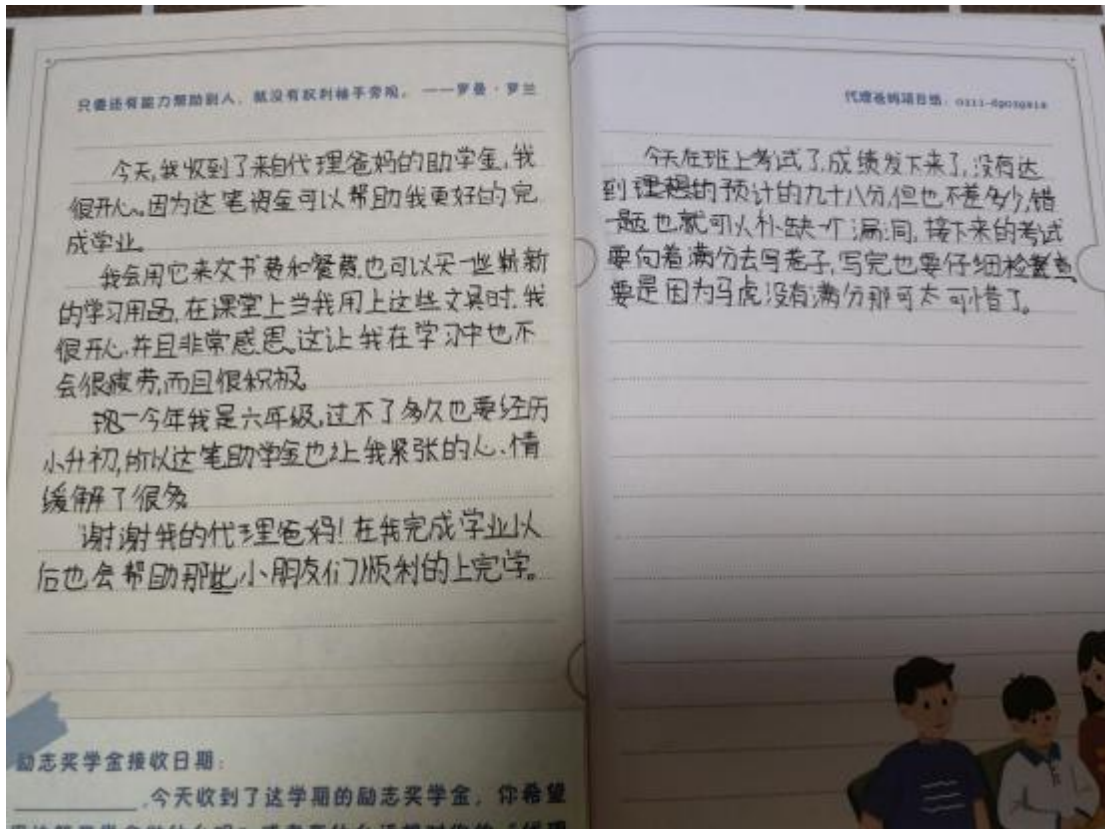 只要还有能力帮助别人，就没有权利袖手旁观。——罗曼·罗兰
今天,我收到了来自代理爸妈的助学金,我
很开心。因为这笔资金可以帮助我更好的完
成学业。
我会用它来交书费和餐费,也可以买一些新新
的学习用品,在课堂上当我用上这些文具时,我
很开心,并且非常感恩。这让我在学习中也不
会很疲劳,而且很积极。
今年我是六年级,过不了多久也要经历
小升初,所以这笔助学金也让我紧张的心情
缓解了很多。
谢谢我的代理爸妈!在我完成学业以
后也会帮助那些小朋友们顺利的上完学。
励志奖学金接收日期：
,今天收到了这学期的励志奖学金，你希望
代理爸妈项目组：
今天在班上考试了,成绩发下来了,没有达
到理想的预计的九十八分,但也不差多少,错
一题也就可以补缺一个漏洞,接下来的考试
要向着满分去写卷子,写完也要仔细检查
要是因为马虎没有满分那可太可惜了。